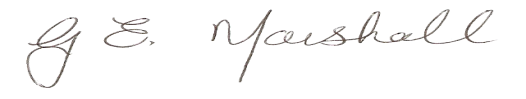 G E. Marshall